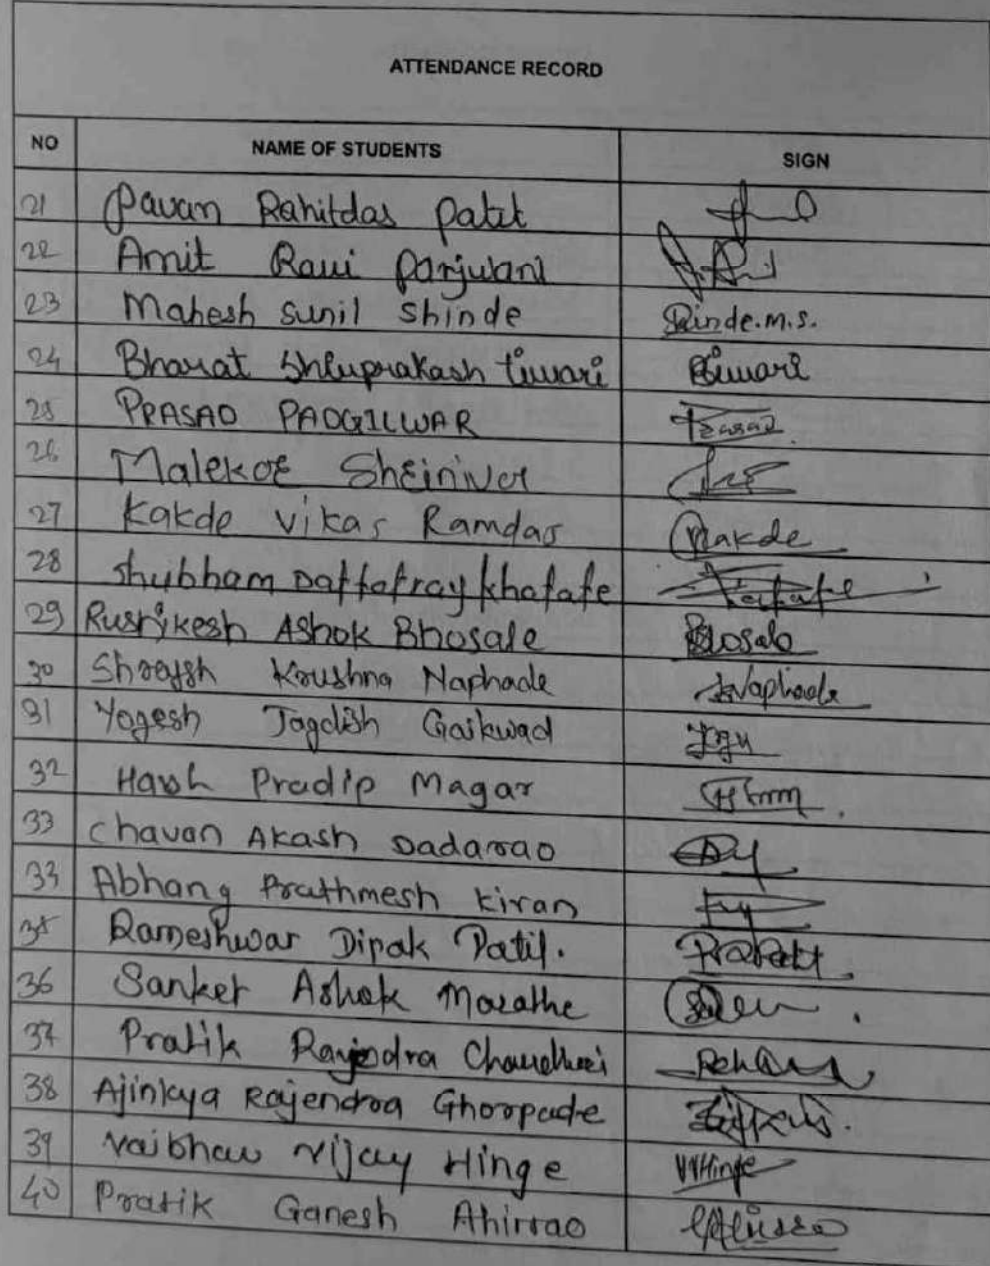 ATTENDANCE RECORD
NO NAME OF STUDENTS SIGN
21 Pavan Rohitdas Patil
22 Amit Ravi Parjwani
23 Mahesh Sunil Shinde Shinde.m.s.
24 Bharat Shivprakash tiwari Tiwari
25 PRASAD PADGILWAR Prasad
26 Malekoe
27 Kakde Vikas Ramdas Kakde
28 Shubham Dattatray Khatate
29 Rushikesh Ashok Bhosale Bhosale
30 Krushna Naphade Naphade
31 Yogesh Jagdish Gaikwad
32 Harsh Pradip Magar
33 Chavan Akash Dadarao
33 Abhang Prathmesh Kiran
35 Rameshwar Dipak Patil.
36 Sanket Ashok Marathe
37 Pratik Rajendra Chaudhari
38 Ajinkya Rajendra Ghorpade
39 Vaibhav Vijay Hinge VVHinge
40 Pratik Ganesh Ahirrao